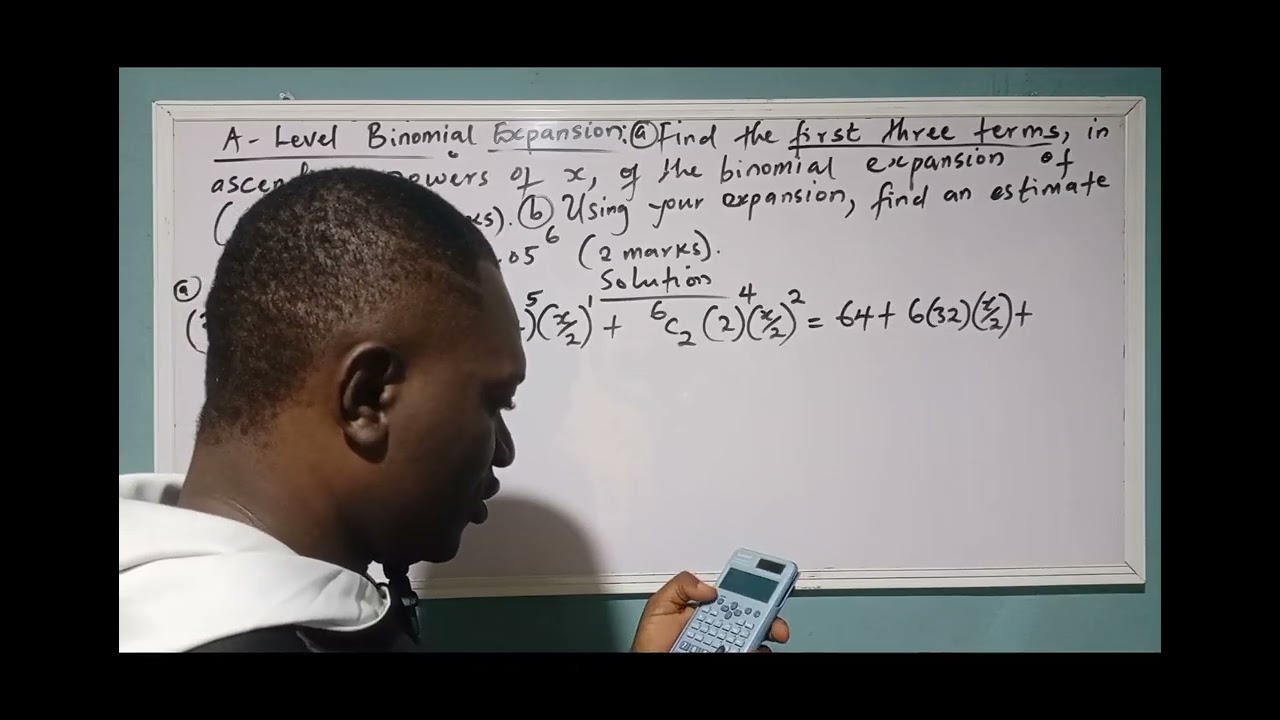 A-Level Binomial Expansion: ⓐ Find the first three terms, in
powers of x, of the binomial expansion of
( ks). ⓑ Using your expansion, find an estimate
.05⁶ (2 marks).
Solution
ⓐ
( )⁵(x/2)¹ + ⁶C₂ (2)⁴(x/2)² = 64 + 6(32)(x/2) +